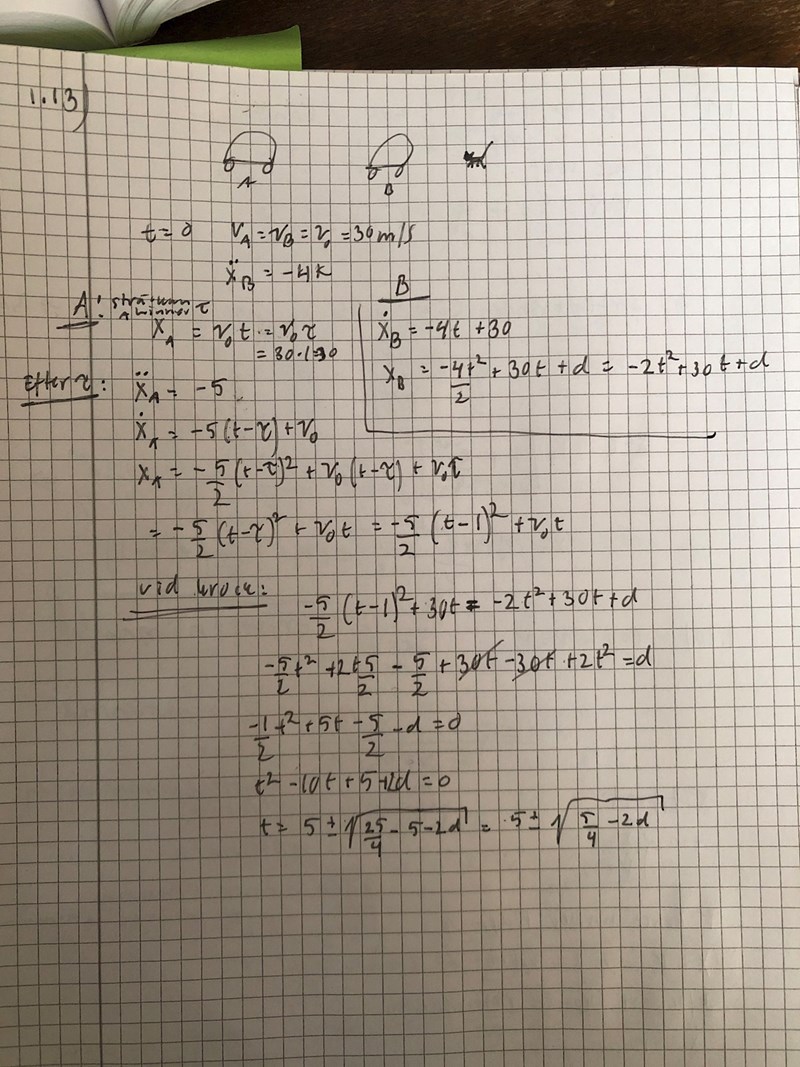 1.13)
A
B
t=0 v_A = v_B = v_0 = 30 m/s
ẍ_B = -4
A:
x_A = v_0 t = v_0 τ
= 30·1=30
B
ẋ_B = -4t + 30
x_B = -4t²/2 + 30t + d = -2t² + 30t + d
Efter τ: ẍ_A = -5
ẋ_A = -5(t-τ) + v_0
x_A = -5/2 (t-τ)² + v_0 (t-τ) + v_0 τ
= -5/2 (t-τ)² + v_0 t = -5/2 (t-1)² + v_0 t
vid krock: -5/2 (t-1)² + 30t = -2t² + 30t + d
-5/2 t² + 2t 5/2 - 5/2 + 30t - 30t + 2t² = d
-1/2 t² + 5t - 5/2 - d = 0
t² - 10t + 5 + 2d = 0
t = 5 ± √(25/4 - 5 - 2d) = 5 ± √(5/4 - 2d)